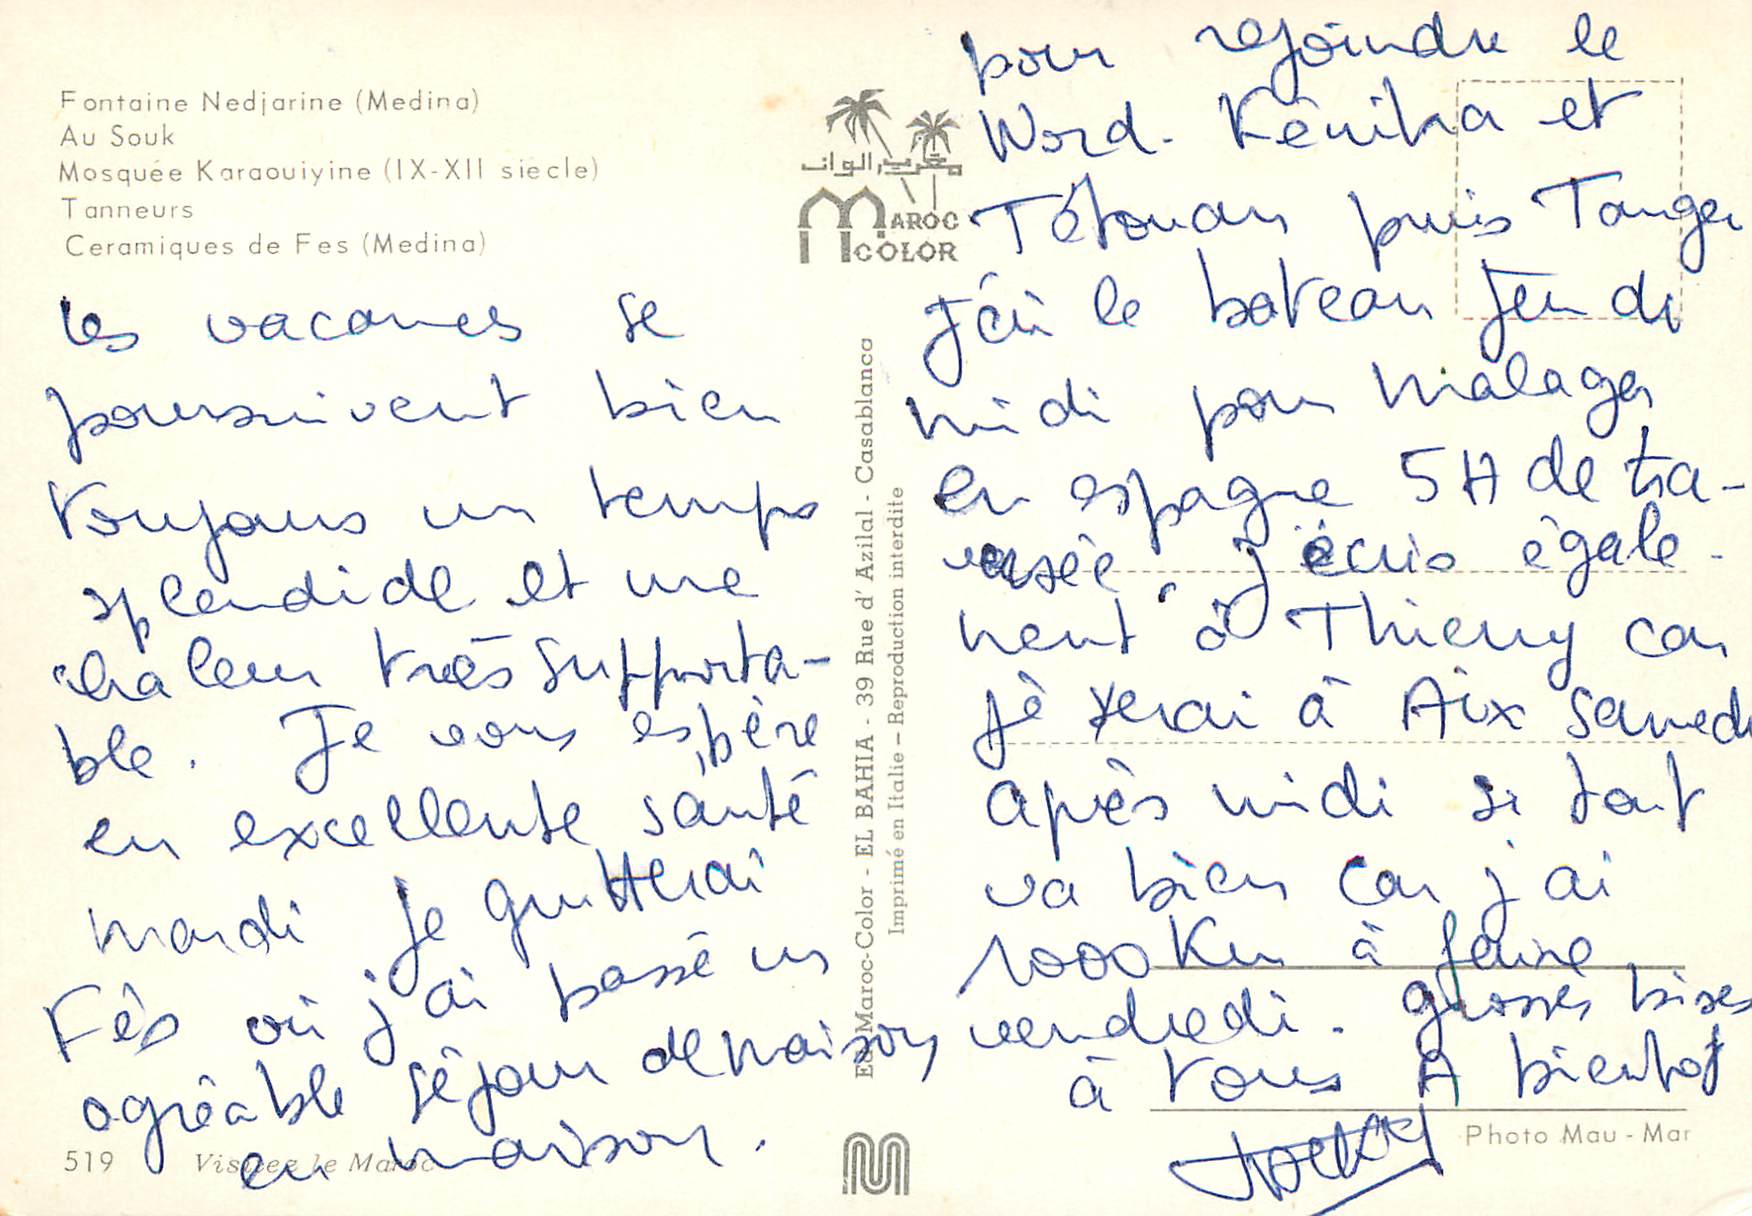 Fontaine Nedjarine (Medina)
Au Souk
Mosquée Karaouiyine (IX-XII siècle)
Tanneurs
Ceramiques de Fes (Medina)
مغرب الوان
MAROC
COLOR
les vacances se
poursuivent bien
toujours un temps
splendide et une
chaleur très supporta-
ble. Je vous espère
en excellente santé
mardi je quitterai
Fès où j'ai passé un
agréable séjour de maison
en maison.
519 Visitez le Maroc
Ed. Maroc-Color - EL BAHIA - 39 Rue d' Azilal - Casablanca
Imprimé en Italie - Reproduction interdite
pour rejoindre le
Nord. Kénitra et
Tétouan puis Tanger
J'ai le bateau Jeudi
midi pour Malaga
en espagne 5H de tra-
versée. j'écris égale-
ment à Thierry car
je serai à Aix samedi
après midi si tout
va bien car j'ai
1000 Km à faire
vendredi. grosses bises
à tous A bientôt
Photo Mau - Mar